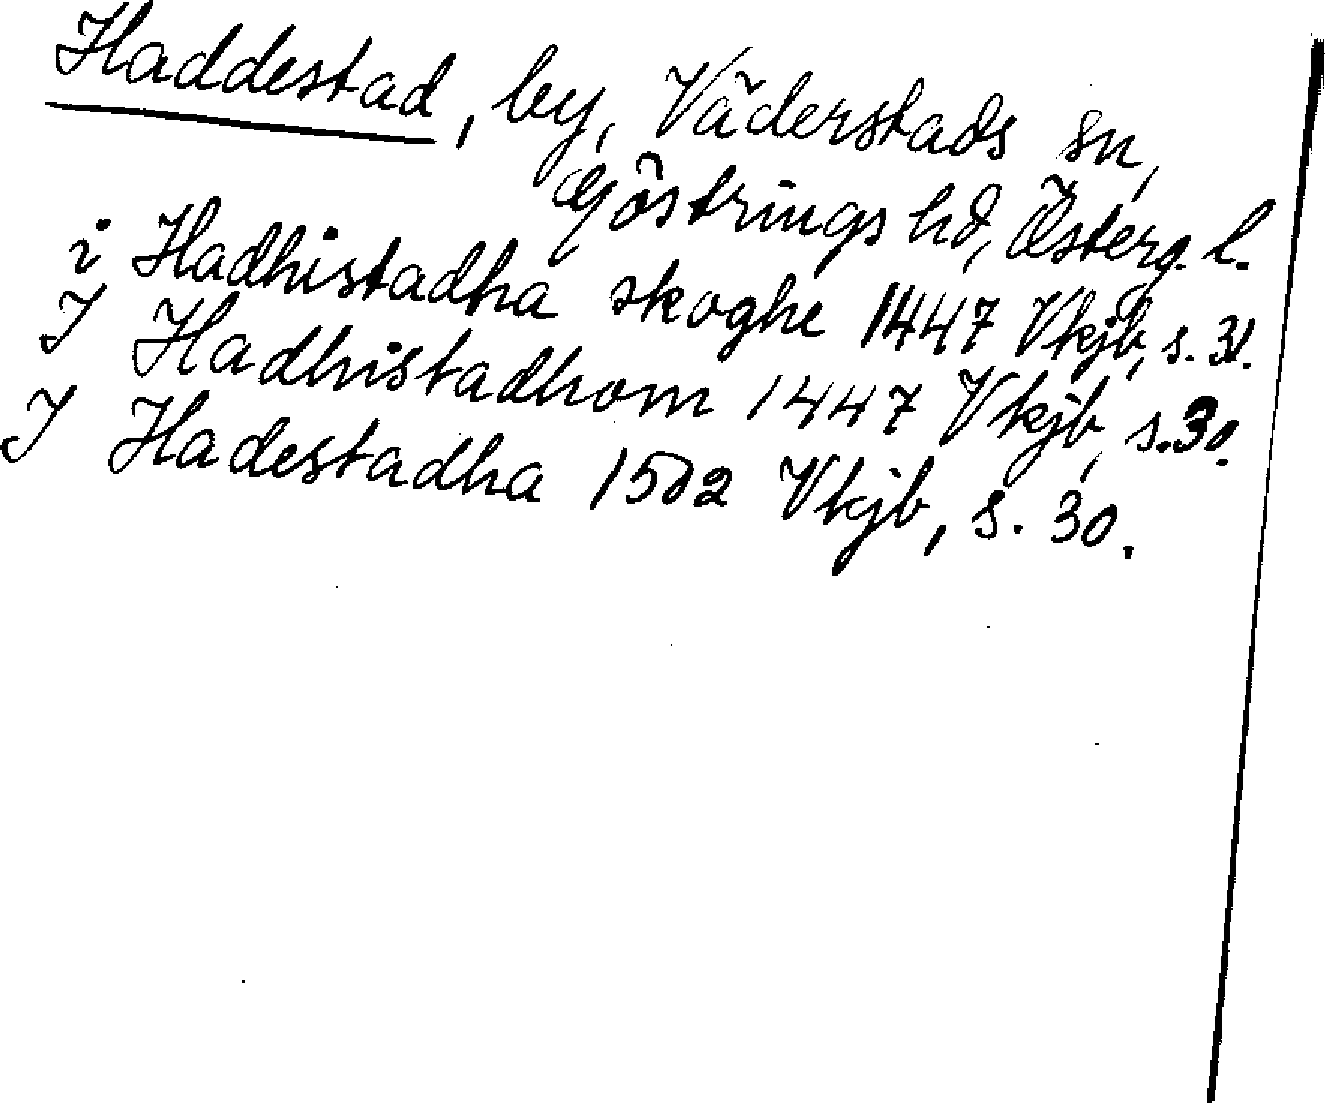 Haddestad, by, Väderstads sn,
Göstrings hd, Österg. l.
i Hadhistadha skoghe 1447 Vkjb, s. 31.
I Hadhistadhom 1447 Vkjb, s. 30.
I Hadestadha 1502 Vkjb, s. 30.